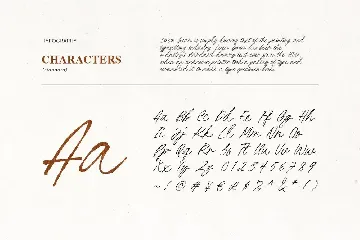 TYPOGRAPHY
CHARACTERS
(Standard)
Lorem Ipsum is simply dummy text of the printing and
typesetting industry. Lorem Ipsum has been the
industry's standard dummy text ever since the 1500s,
when an unknown printer took a galley of type and
scrambled it to make a type specimen book.
Aa
Aa Bb Cc Dd Ee Ff Gg Hh
Ii Jj Kk Ll Mm Nn Oo
Pp Qq Rr Ss Tt Uu Vv Ww
Xx Yy Zz 0 1 2 3 4 5 6 7 8 9
~ ! @ # $ % ^ & * ( )